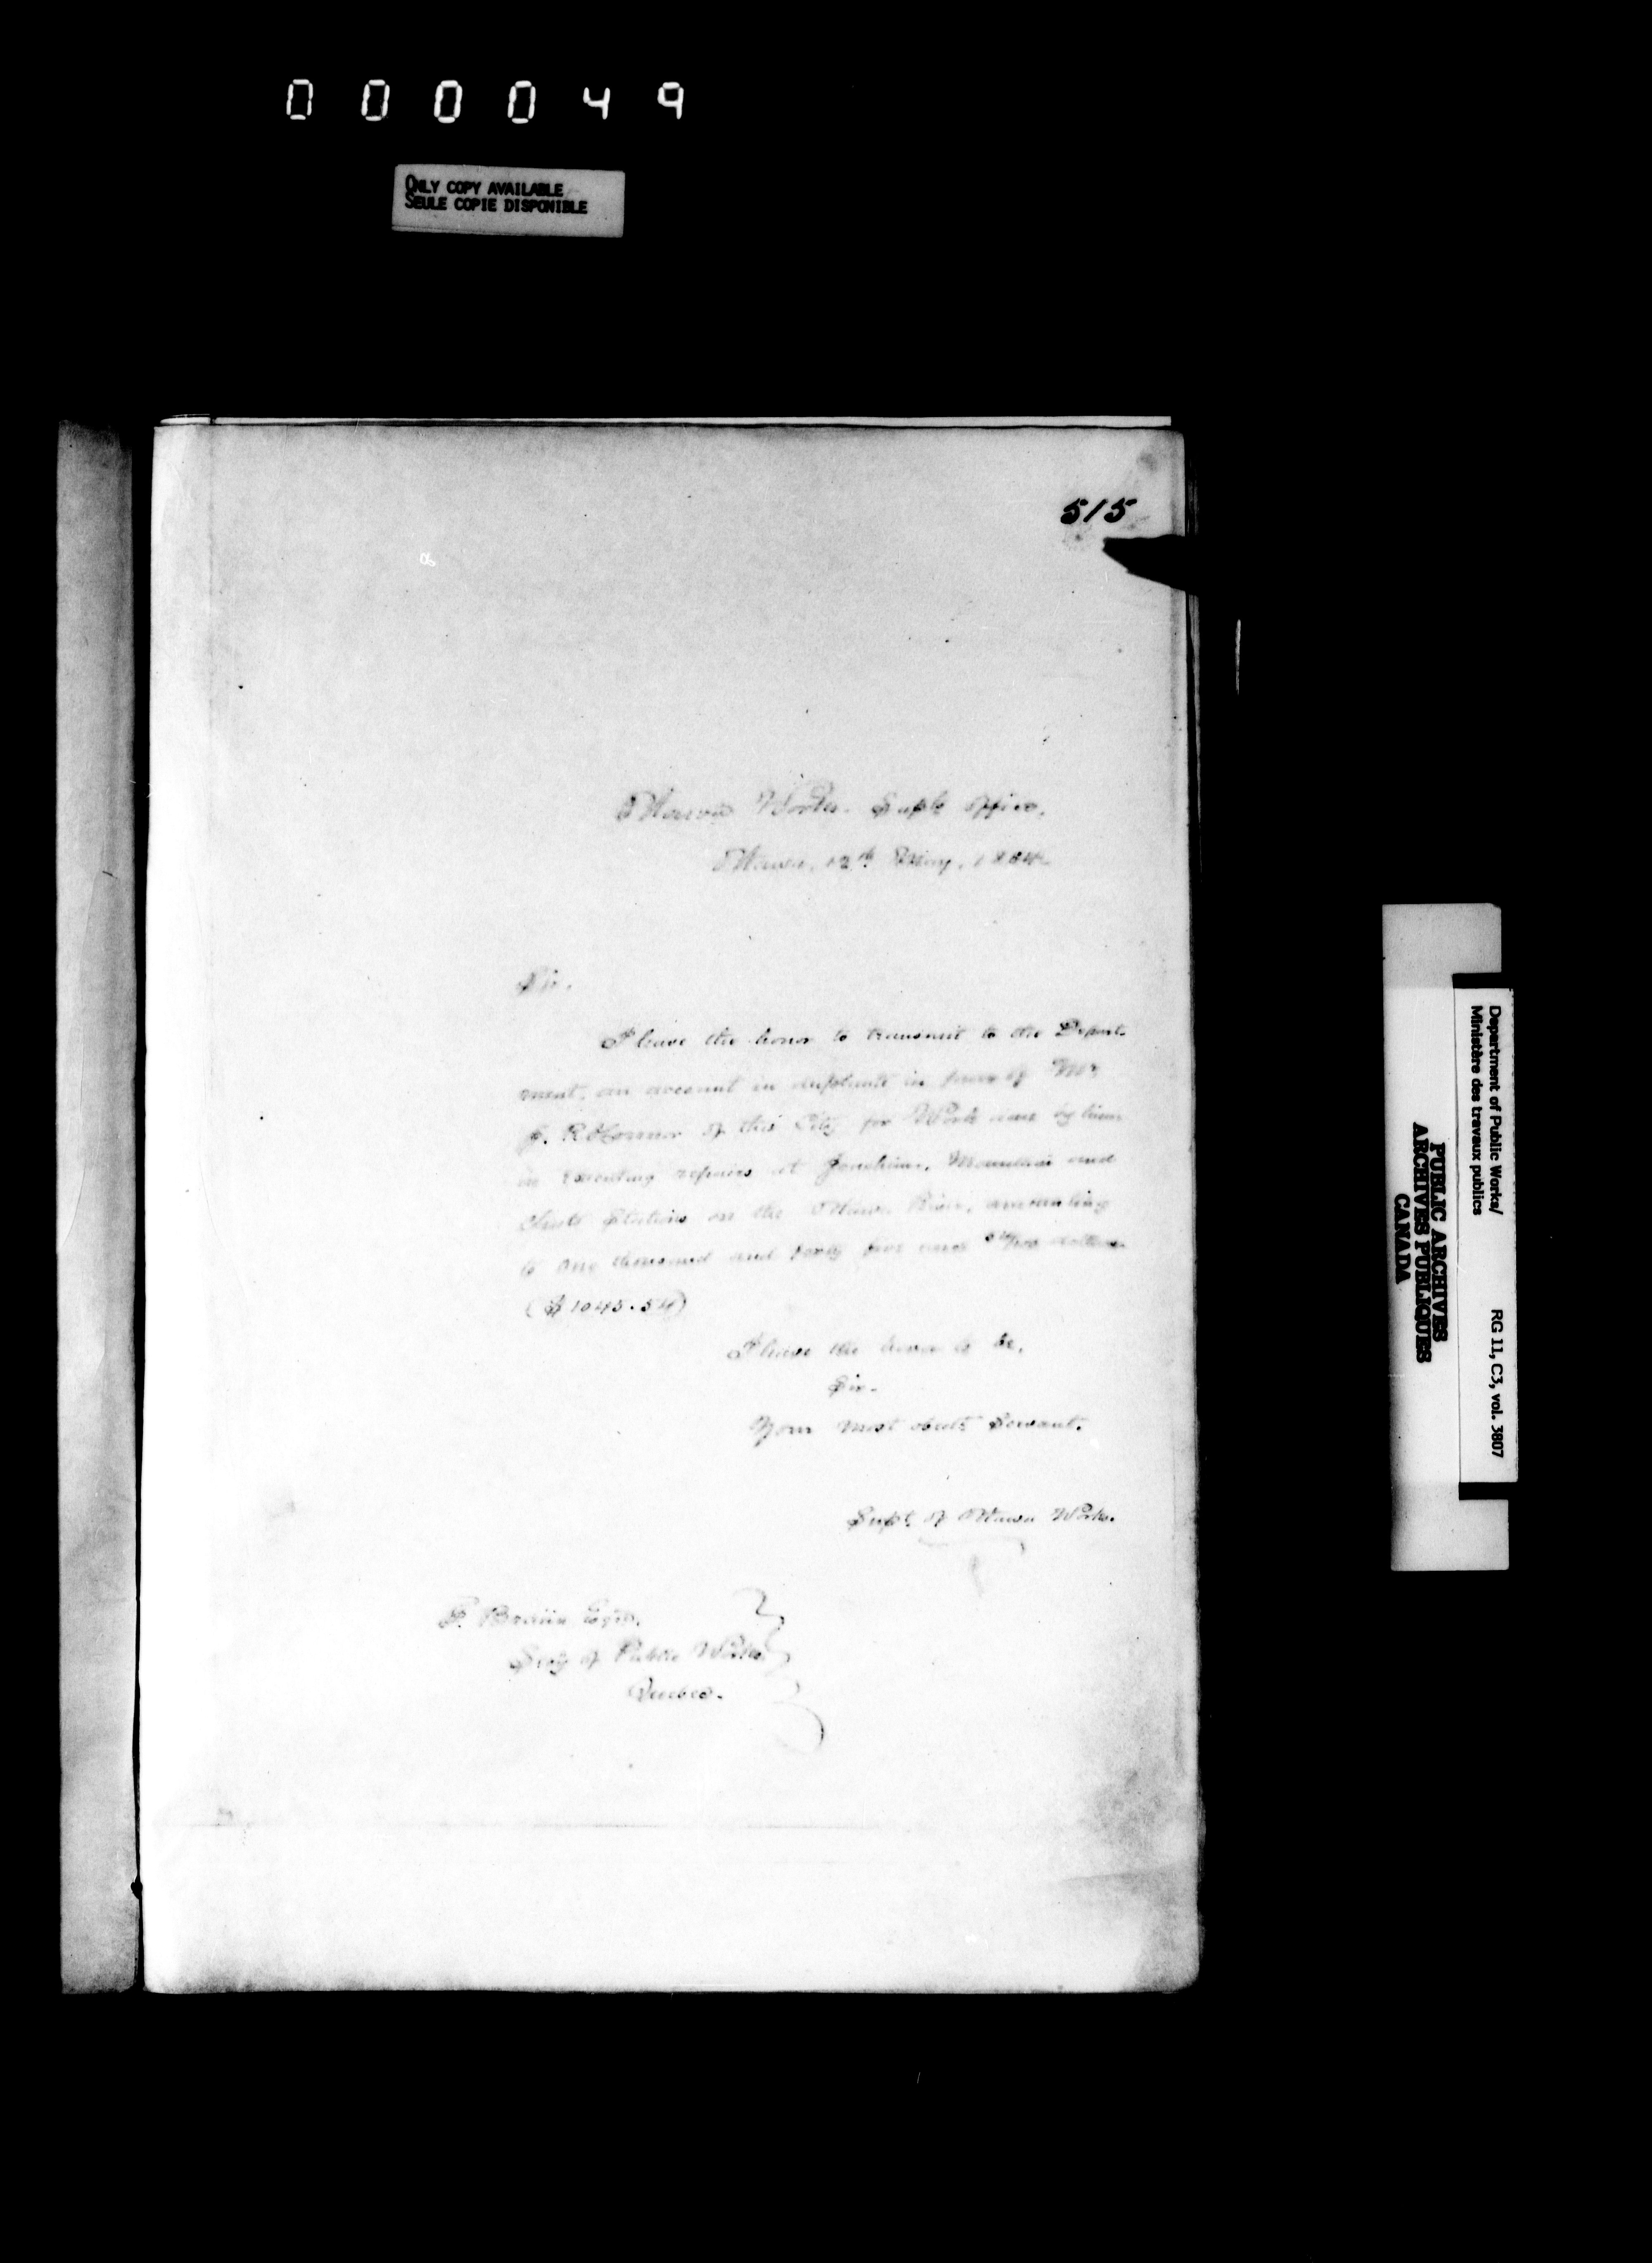 000049
ONLY COPY AVAILABLE
SEULE COPIE DISPONIBLE
515
Ottawa Works. Supts Office,
Ottawa, 12th May, 1864
Sir,
I have the honor to transmit to the Depart-
ment, an account in duplicate in favor of Mr
J. R. O'Connor of this City for Work done by him
in executing repairs at Joachim, Mountain and
Chats Stations on the Ottawa River, amounting
to One thousand and forty five and 54/100 dollars
($1045.54)
I have the honor to be,
Sir.
Your most obedt Servant.
Supt. of Ottawa Works.
Esqre.
Secy of Public Works
Quebec.
Department of Public Works/
Ministère des travaux publics
RG 11, C3, vol. 3807
PUBLIC ARCHIVES
ARCHIVES PUBLIQUES
CANADA